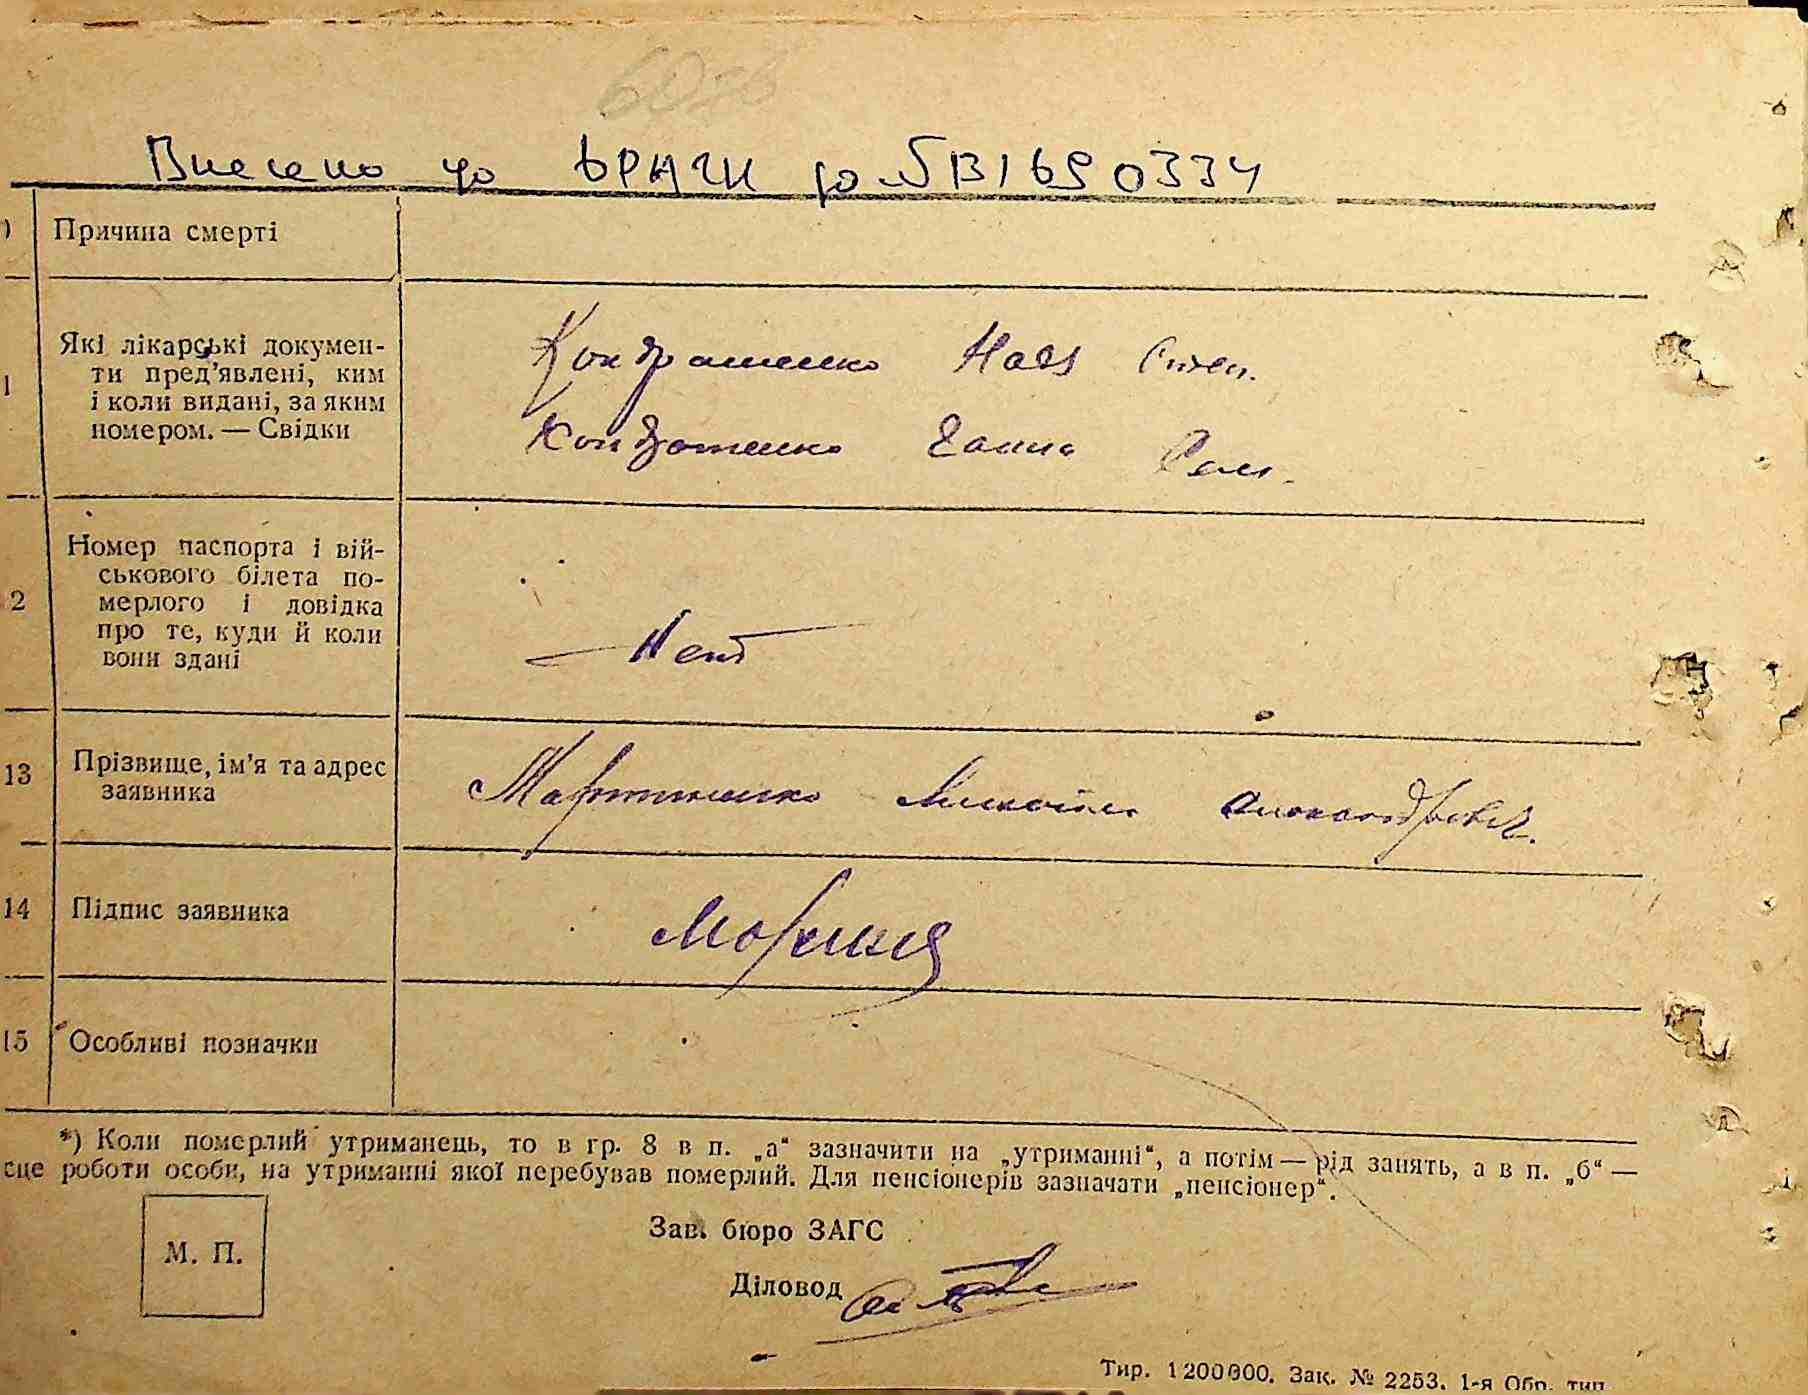 Внесено до ДРАЦГ
) Причина смерті
1 Які лікарські докумен-
ти пред'явлені, ким
і коли видані, за яким
номером. — Свідки
Кондратенко Степ.
Кондратенко Ганна
2 Номер паспорта і вій-
ськового білета по-
мерлого і довідка
про те, куди й коли
вони здані
— Нет
13 Прізвище, ім'я та адрес
заявника
Мартиненко Михайло Александрович.
14 Підпис заявника
15 Особливі позначки
*) Коли померлий утриманець, то в гр. 8 в п. „а“ зазначити на „утриманні“, а потім — рід занять, а в п. „б“ —
сце роботи особи, на утриманні якої перебував померлий. Для пенсіонерів зазначати „пенсіонер“.
М. П.
Зав. бюро ЗАГС
Діловод
Тир. 1200000. Зак. № 2253. 1-я Обр. тип.